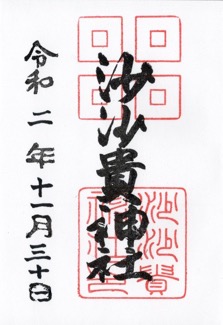 沙沙貴神社
令和二年十一月三十日